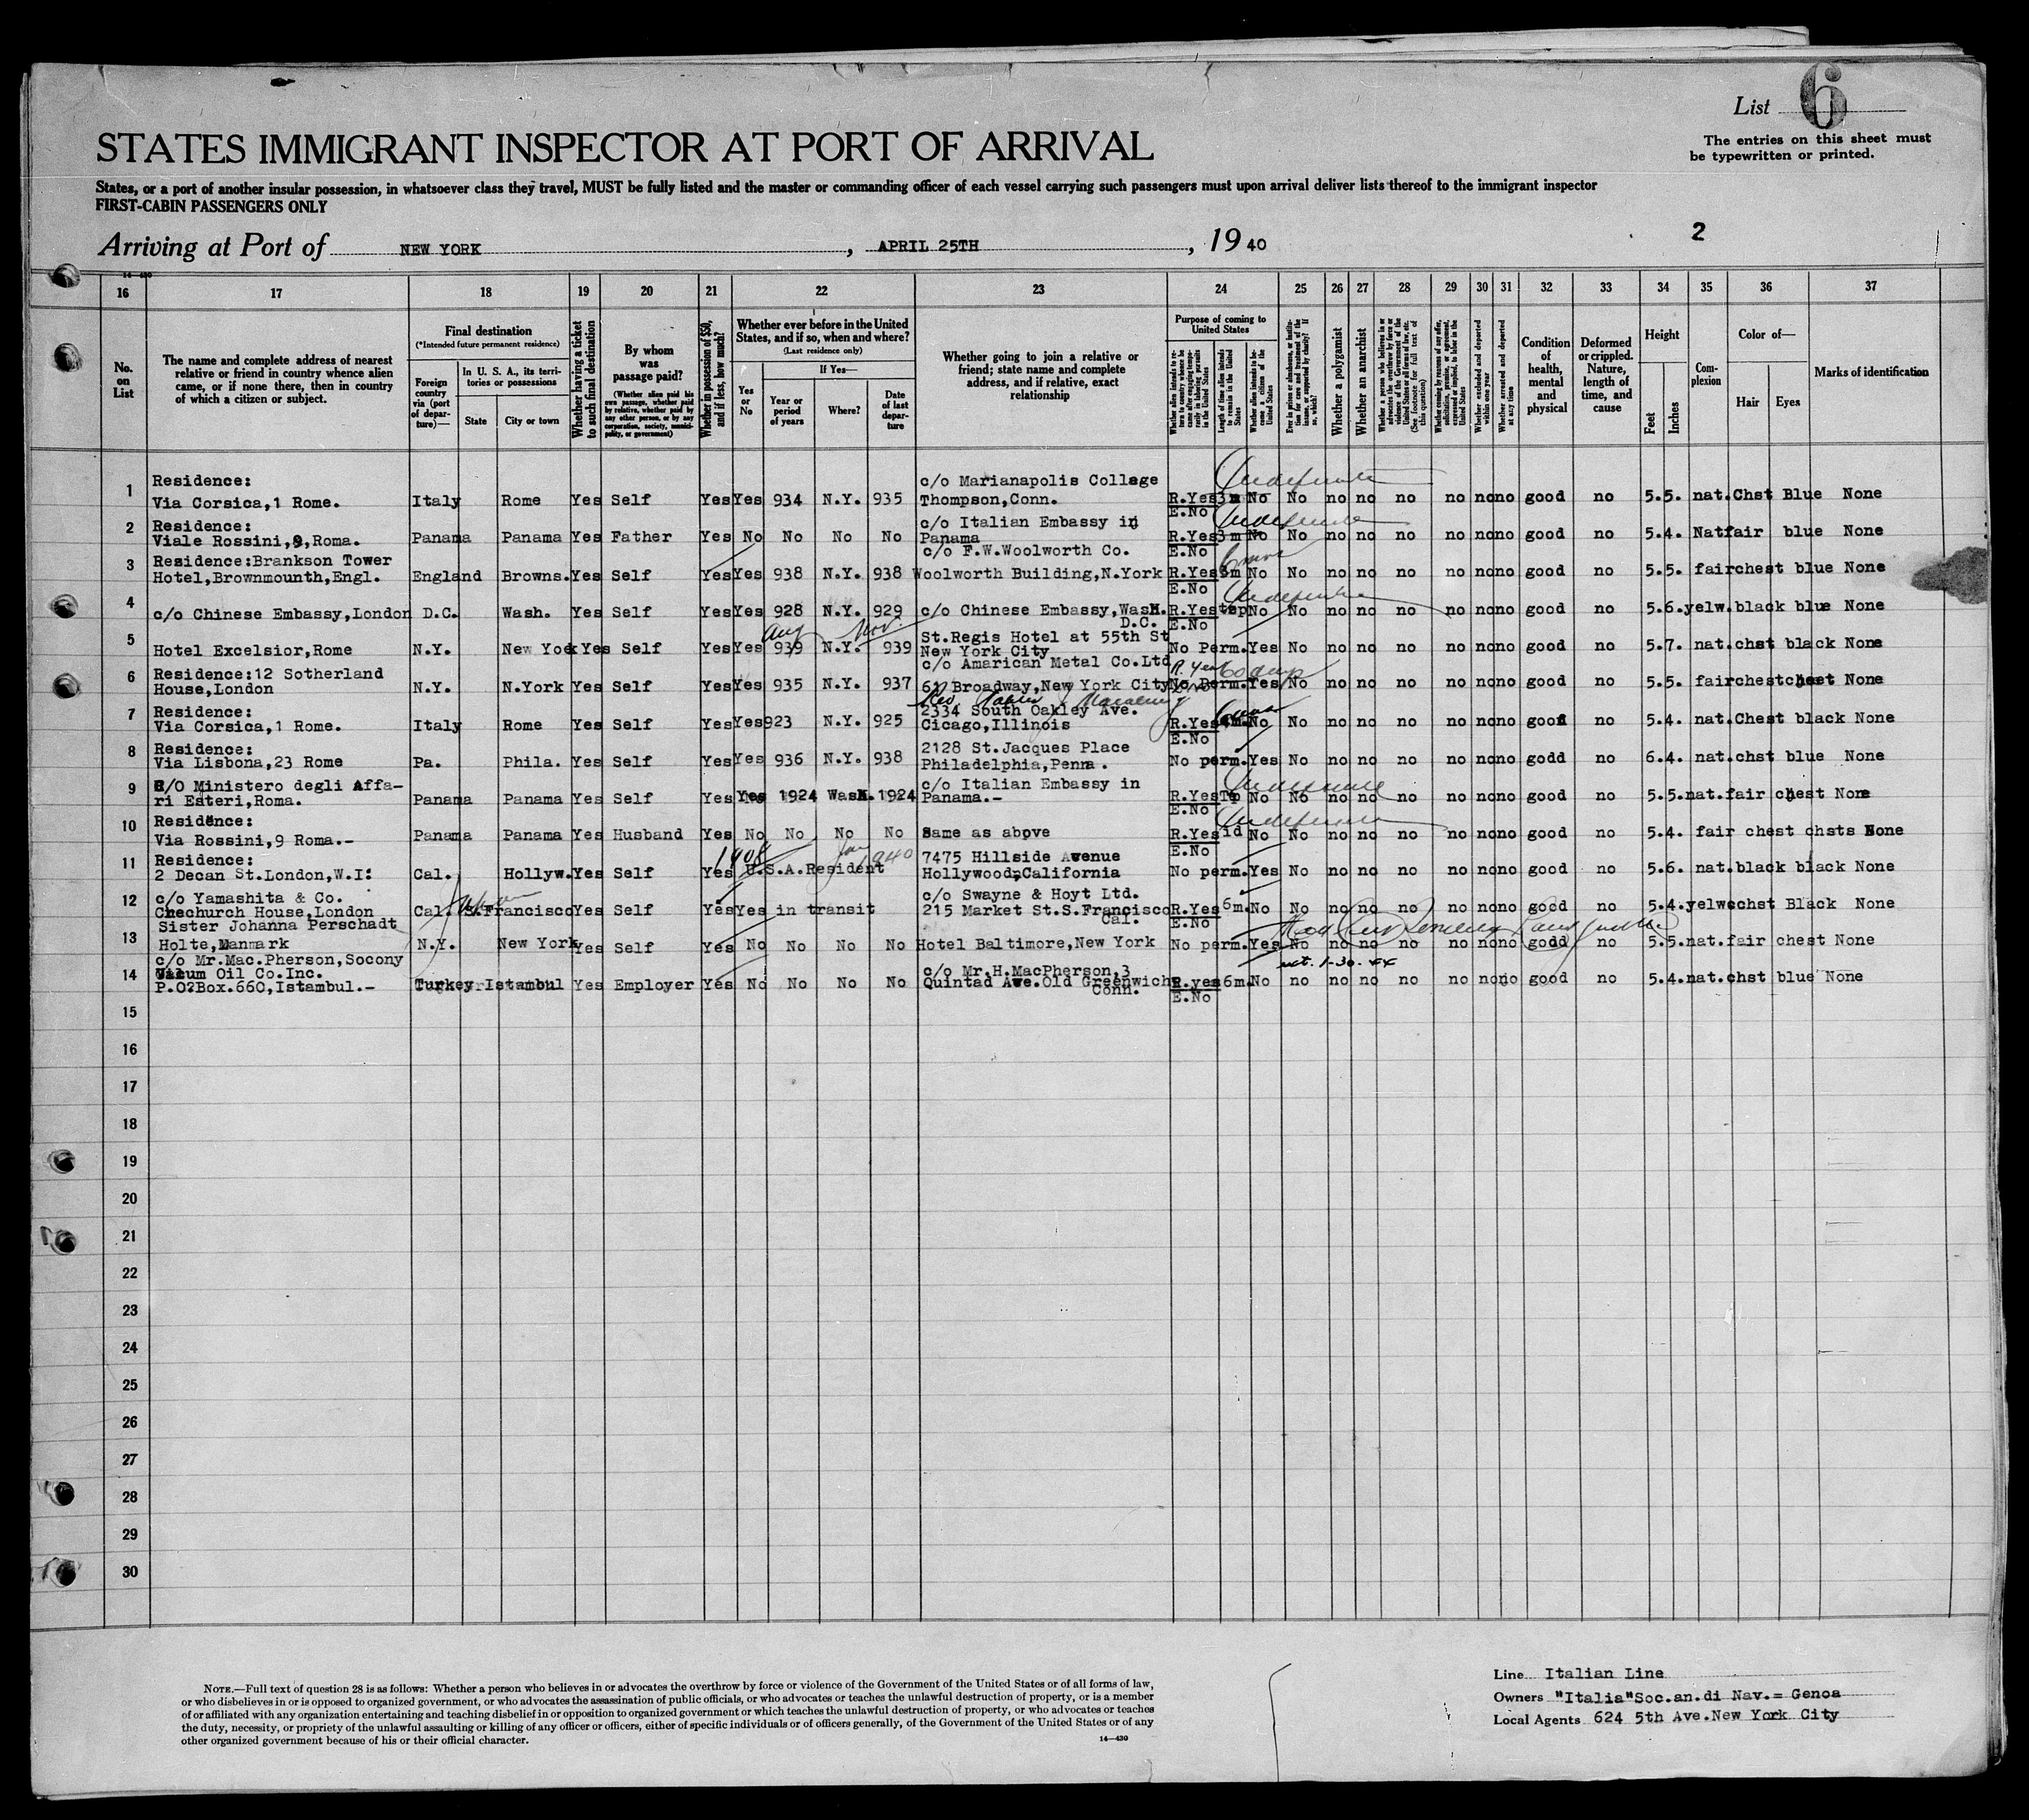 List 6
The entries on this sheet must
be typewritten or printed.
STATES IMMIGRANT INSPECTOR AT PORT OF ARRIVAL
States, or a port of another insular possession, in whatsoever class they travel, MUST be fully listed and the master or commanding officer of each vessel carrying such passengers must upon arrival deliver lists thereof to the immigrant inspector
FIRST-CABIN PASSENGERS ONLY
2
Arriving at Port of NEW YORK, APRIL 25TH, 19 40
16 17 18 19 20 21 22 23 24 25 26 27 28 29 30 31 32 33 34 35 36 37
No. on List
The name and complete address of nearest relative or friend in country whence alien came, or if none there, then in country of which a citizen or subject.
Final destination
(*Intended future permanent residence)
Foreign country via (port of departure)—
In U. S. A., its territories or possessions
State
City or town
Whether having a ticket to such final destination
By whom was passage paid?
(Whether alien paid his own passage, whether paid by relative, whether paid by any other person, or by any corporation, society, municipality, or government)
Whether in possession of $50, and if less, how much?
Whether ever before in the United States, and if so, when and where?
(Last residence only)
Yes or No
If Yes—
Year or period of years
Where?
Date of last departure
Whether going to join a relative or friend; state name and complete address, and if relative, exact relationship
Purpose of coming to United States
Length of time alien intends to remain in the United States
Whether alien intends to become a citizen of the United States
Whether a polygamist
Whether an anarchist
Whether excluded and deported within one year
Whether arrested and deported at any time
Condition of health, mental and physical
Deformed or crippled. Nature, length of time, and cause
Height
Feet
Inches
Complexion
Color of—
Hair
Eyes
Marks of identification
Residence: c/o Marianapolis Collage Indefinite
1 Via Corsica,1 Rome. Italy Rome Yes Self Yes Yes 934 N.Y. 935 Thompson,Conn. R.Yes 3m No No no no no no no no good no 5.5. nat. Chst Blue None
E.No
Residence: c/o Italian Embassy in Indefinite
2 Viale Rossini,9,Roma. Panama Panama Yes Father Yes No No No No Panama R.Yes 3m No No no no no no no no good no 5.4. Nat fair blue None
E.No
Residence:Brankson Tower c/o F.W.Woolworth Co.
3 Hotel,Brownmounth,Engl. England Browns. Yes Self Yes Yes 938 N.Y. 938 Woolworth Building,N.York R.Yes 3m No No no no no no no no good no 5.5. fair chest blue None
E.No Indefinite
4 c/o Chinese Embassy,London D.C. Wash. Yes Self Yes Yes 928 N.Y. 929 c/o Chinese Embassy,Wash. R.Yes No No no no no no no no good no 5.6. yelw. black blue None
D.C. E.No
Aug Nov. St.Regis Hotel at 55th St
5 Hotel Excelsior,Rome N.Y. New Yook Yes Self Yes Yes 939 N.Y. 939 New York City No Perm. Yes No no no no no no no good no 5.7. nat. chst black None
Residence:12 Sotherland c/o Amarican Metal Co.Ltd R. Yes 60 days
6 House,London N.Y. N.York Yes Self Yes Yes 935 N.Y. 937 61 Broadway,New York City No Perm. Yes No no no no no no no good no 5.5. fair chest chest None
Residence: 2334 South Oakley Ave.
7 Via Corsica,1 Rome. Italy Rome Yes Self Yes Yes 923 N.Y. 925 Cicago,Illinois R.Yes No No no no no no no no good no 5.4. nat. Chest black None
E.No
Residence: 2128 St.Jacques Place
8 Via Lisbona,23 Rome Pa. Phila. Yes Self Yes Yes 936 N.Y. 938 Philadelphia,Penna. No perm. Yes No no no no no no no godd no 6.4. nat. chst blue None
C/O Ministero degli Affa- c/o Italian Embassy in Indefinite
9 ri Esteri,Roma. Panama Panama Yes Self Yes Yes 1924 Wash. 1924 Panama.- R.Yes No No no no no no no no good no 5.5. nat. fair chest None
E.No
Residence: Indefinite
10 Via Rossini,9 Roma.- Panama Panama Yes Husband Yes No No No No Same as above R.Yes id No No no no no no no no good no 5.4. fair chest chsts None
E.No
Residence: 1908 Jan 1940 7475 Hillside Avenue
11 2 Decan St.London,W.I: Cal. Hollyw. Yes Self Yes U.S.A.Resident Hollywood,California No perm. Yes No no no no no no no good no 5.6. nat. black black None
c/o Yamashita & Co. c/o Swayne & Hoyt Ltd.
12 Chechurch House,London Cal. S.Francisco Yes Self Yes Yes in transit 215 Market St.S.Francisco R.Yes 6m. No No no no no no no no good no 5.4. yelw chst Black None
Cal. E.No
Sister Johanna Perschadt
13 Holte,Danmark N.Y. New York Yes Self Yes No No No No Hotel Baltimore,New York No perm. Yes No no no no no no no godd no 5.5. nat. fair chest None
c/o Mr.Mac.Pherson,Socony 1-30-44
14 Vacum Oil Co.Inc. c/o Mr.H.MacPherson,3
P.O?Box.660,Istambul.- Turkey Istambul Yes Employer Yes No No No No Quintad Ave.Old Greenwich R.yes 6m. No no no no no no no no good no 5.4. nat. chst blue None
Conn. E.No
15
16
17
18
19
20
21
22
23
24
25
26
27
28
29
30
NOTE.—Full text of question 28 is as follows: Whether a person who believes in or advocates the overthrow by force or violence of the Government of the United States or of all forms of law,
or who disbelieves in or is opposed to organized government, or who advocates the assassination of public officials, or who advocates or teaches the unlawful destruction of property, or is a member
of or affiliated with any organization entertaining and teaching disbelief in or opposition to organized government or which teaches the unlawful destruction of property, or who advocates or teaches
the duty, necessity, or propriety of the unlawful assaulting or killing of any officer or officers, either of specific individuals or of officers generally, of the Government of the United States or of any
other organized government because of his or their official character.
14—430
Line Italian Line
Owners "Italia"Soc.an.di Nav.= Genoa
Local Agents 624 5th Ave.New York City